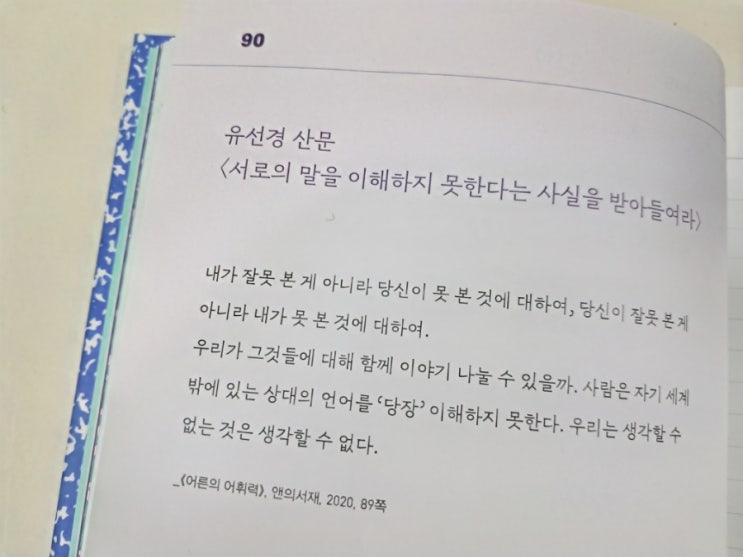 90
유선경 산문
〈서로의 말을 이해하지 못한다는 사실을 받아들여라〉
내가 잘못 본 게 아니라 당신이 못 본 것에 대하여, 당신이 잘못 본 게
아니라 내가 못 본 것에 대하여.
우리가 그것들에 대해 함께 이야기 나눌 수 있을까. 사람은 자기 세계
밖에 있는 상대의 언어를 ‘당장’ 이해하지 못한다. 우리는 생각할 수
없는 것은 생각할 수 없다.
_《어른의 어휘력》, 앤의서재, 2020, 89쪽